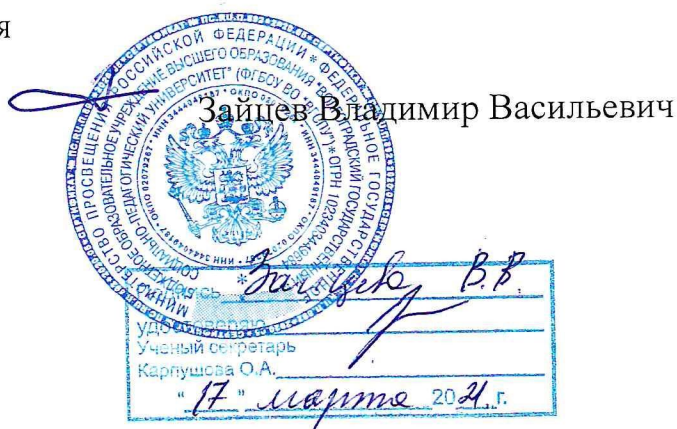 я
Зайцев Владимир Васильевич
МИНИСТЕРСТВО ПРОСВЕЩЕНИЯ РОССИЙСКОЙ ФЕДЕРАЦИИ * ФЕДЕРАЛЬНОЕ ГОСУДАРСТВЕННОЕ
БЮДЖЕТНОЕ ОБРАЗОВАТЕЛЬНОЕ УЧРЕЖДЕНИЕ ВЫСШЕГО ОБРАЗОВАНИЯ "ВОЛГОГРАДСКИЙ ГОСУДАРСТВЕННЫЙ
СОЦИАЛЬНО-ПЕДАГОГИЧЕСКИЙ УНИВЕРСИТЕТ" (ФГБОУ ВО * ОГРН
ИНН 3444049187 * ОКПО 02079267
Зайцева В.В.
удостоверяю
Ученый секретарь
Карпушова О.А.
"17" марта 2021 г.